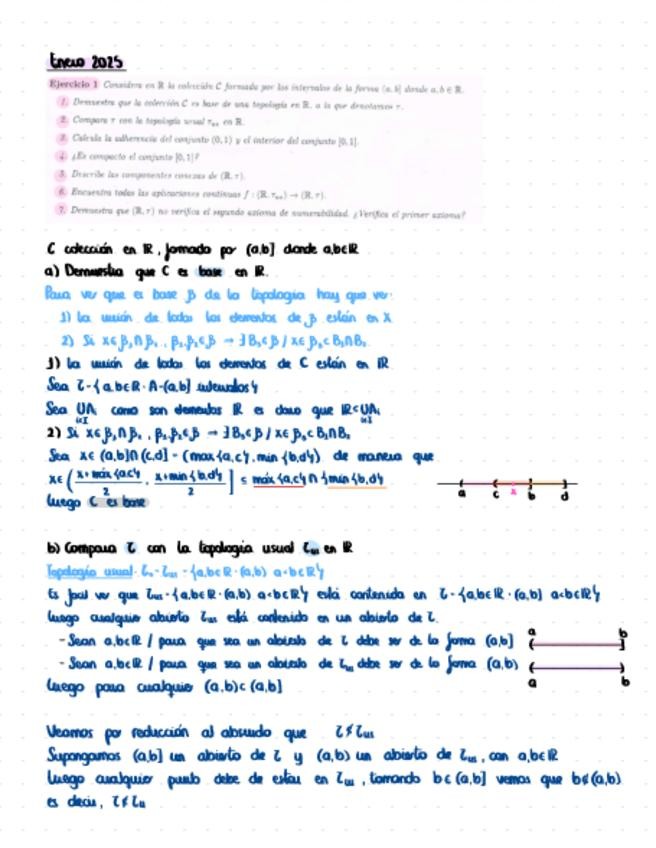 Enero 2025
Ejercicio 1 Considera en ℝ la colección C formada por los intervalos de la forma (a, b] donde a, b ∈ ℝ.
1. Demuestra que la colección C es base de una topología en ℝ, a la que denotamos τ.
2. Compara τ con la topología usual τus en ℝ.
3. Calcula la adherencia del conjunto (0, 1) y el interior del conjunto [0, 1].
4. ¿Es compacto el conjunto [0, 1]?
5. Describe las componentes conexas de (ℝ, τ).
6. Encuentra todas las aplicaciones continuas f : (ℝ, τus) → (ℝ, τ).
7. Demuestra que (ℝ, τ) no verifica el segundo axioma de numerabilidad. ¿Verifica el primer axioma?
C colección en ℝ, formado por (a,b] donde a,b∈ℝ
a) Demuestra que C es base en ℝ.
Para ver que es base β de la topología hay que ver:
1) la unión de todos los elementos de β están en X
2) Si x∈β₁∩β₂, β₁,β₂∈β → ∃B₃∈β / x∈β₃⊂B₁∩B₂
1) la unión de todos los elementos de C están en ℝ
Sea τ={a,b∈ℝ: A=(a,b] intervalos}
Sea ∪Aᵢ como son elementos ℝ es claro que ℝ⊂∪Aᵢ
i∈I
2) Si x∈β₁∩β₂, β₁,β₂∈β → ∃B₃∈β / x∈β₃⊂B₁∩B₂
Sea x∈ (a,b]∩(c,d] = (max{a,c}, min{b,d}) de manera que
x∈ ( x+máx{a,c} / 2 , x+min{b,d} / 2 ] ⊆ máx{a,c} ∩ {min{b,d}
a c x b d
luego C es base
b) Compara τ con la topología usual τus en ℝ
Topología usual: τᵤ=τus={a,b∈ℝ: (a,b) a<b∈ℝ}
Es fácil ver que τus={a,b∈ℝ: (a,b) a<b∈ℝ} está contenida en τ={a,b∈ℝ: (a,b] a<b∈ℝ}
luego cualquier abierto τus está contenido en un abierto de τ.
- Sean a,b∈ℝ / para que sea un abierto de τ debe ser de la forma (a,b]
a b
- Sean a,b∈ℝ / para que sea un abierto de τus debe ser de la forma (a,b)
a b
luego para cualquier (a,b)⊂(a,b]
Veamos por reducción al absurdo que τ⊄τus
Supongamos (a,b] un abierto de τ y (a,b) un abierto de τus, con a,b∈ℝ
luego cualquier punto debe de estar en τus, tomando b∈(a,b] vemos que b∉(a,b)
es decir, τ⊄τu